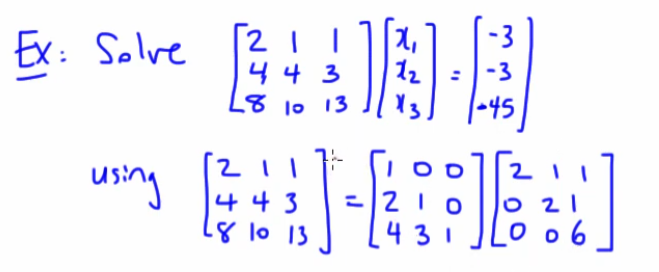 Ex: Solve [2 1 1; 4 4 3; 8 10 13] [x₁; x₂; x₃] = [-3; -3; -45]
using [2 1 1; 4 4 3; 8 10 13] = [1 0 0; 2 1 0; 4 3 1] [2 1 1; 0 2 1; 0 0 6]